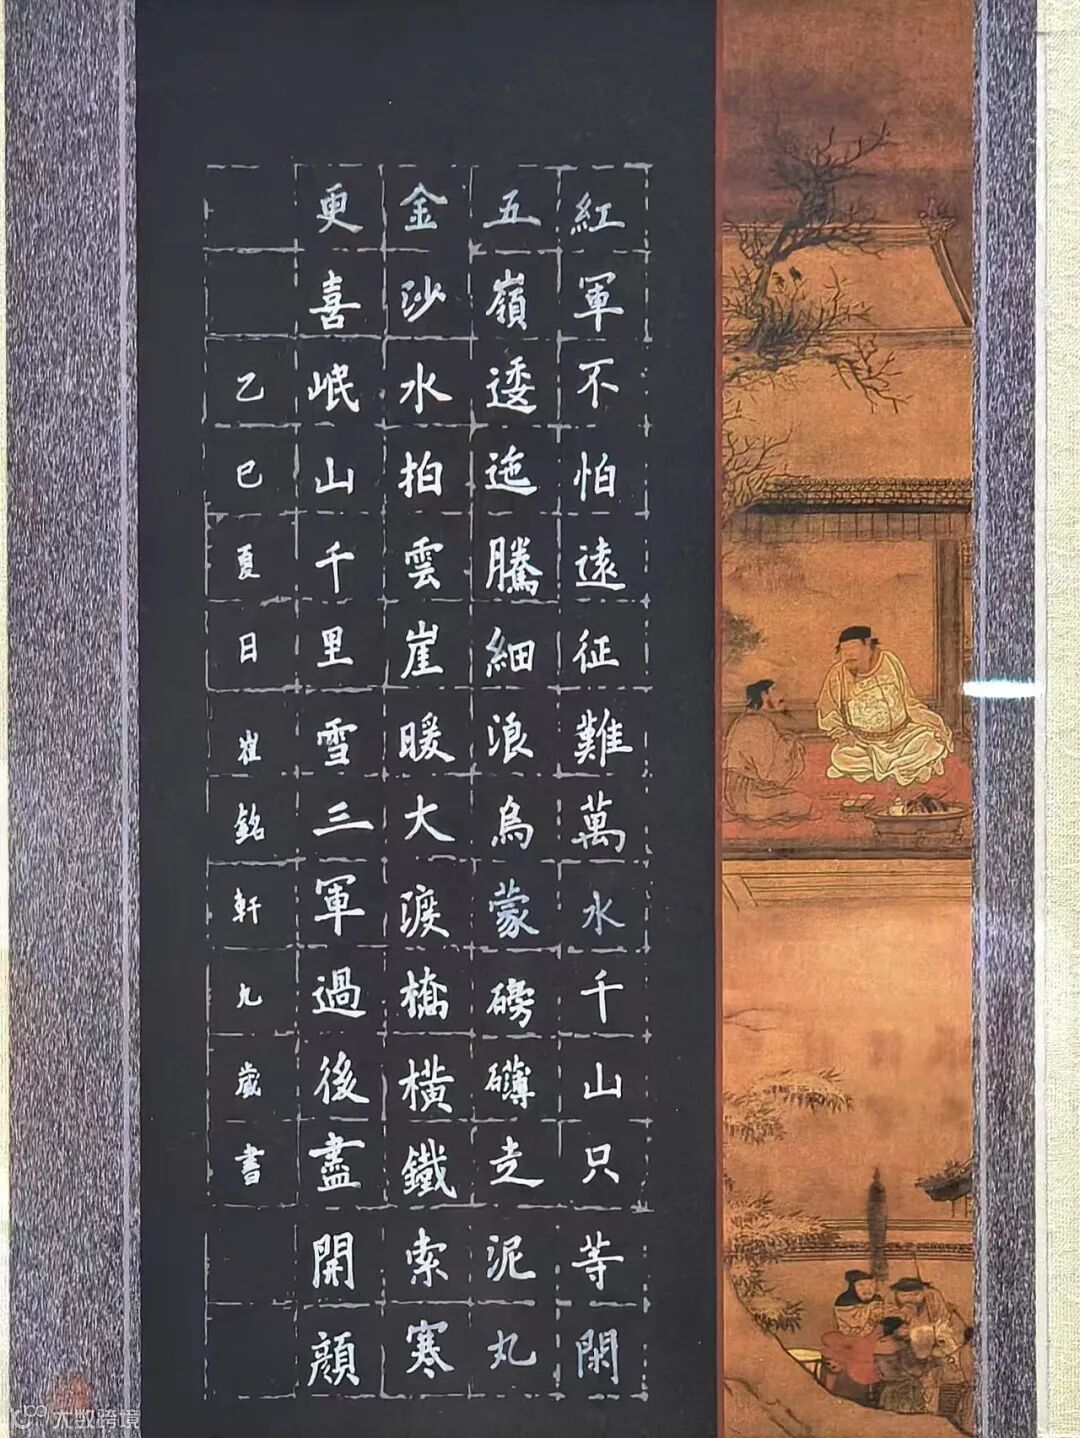 紅軍不怕遠征難萬水千山只等閑
五嶺逶迤騰細浪烏蒙磅礴走泥丸
金沙水拍雲崖暖大渡橋橫鐵索寒
更喜岷山千里雪三軍過後盡開顏
乙巳夏日崔銘軒九歲書
大数跨境